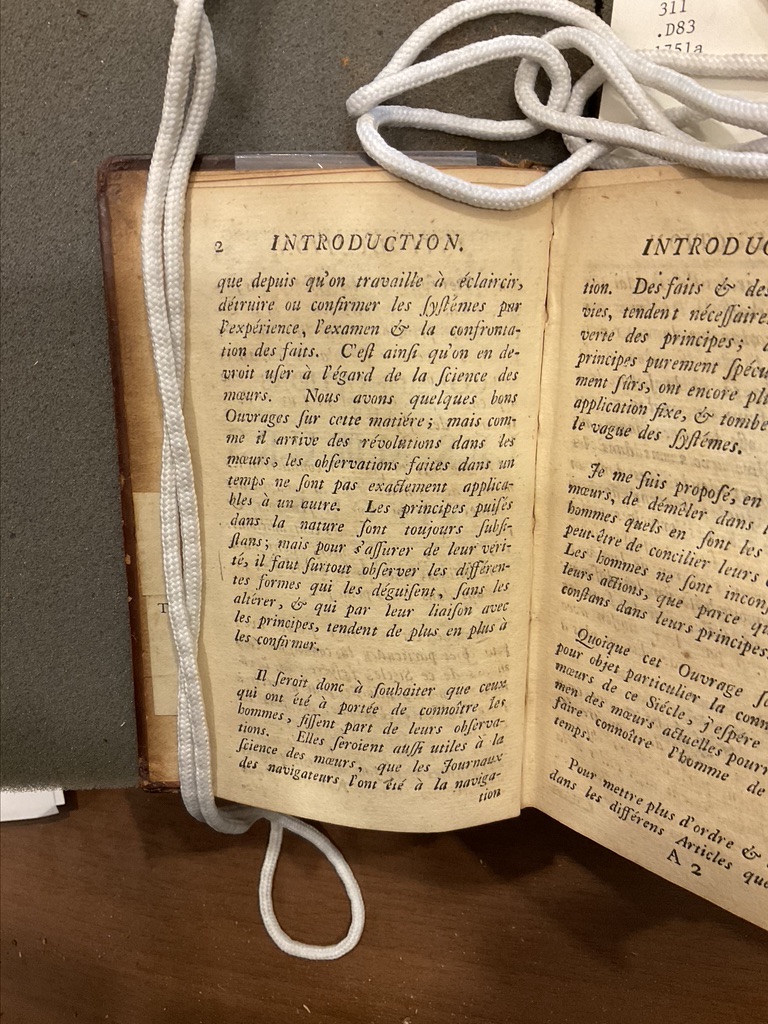 311
.D83
1751a
2 INTRODUCTION.
que depuis qu'on travaille à éclaircir,
détruire ou confirmer les ſyſtémes par
l'expérience, l'examen & la confronta-
tion des faits. C'eſt ainſi qu'on en de-
vroit uſer à l'égard de la ſcience des
mœurs. Nous avons quelques bons
Ouvrages ſur cette matiére; mais com-
me il arrive des révolutions dans les
mœurs, les obſervations faites dans un
temps ne ſont pas exactement applica-
bles à un autre. Les principes puiſés
dans la nature ſont toujours ſubſi-
ſtans; mais pour s'aſſurer de leur véri-
té, il faut ſurtout obſerver les différen-
tes formes qui les déguiſent, ſans les
altérer, & qui par leur liaiſon avec
les principes, tendent de plus en plus à
les confirmer.
Il ſeroit donc à ſouhaiter que ceux
qui ont été à portée de connoître les
hommes, fiſſent part de leurs obſerva-
tions. Elles ſeroient auſſi utiles à la
ſcience des mœurs, que les Journaux
des navigateurs l'ont été à la naviga-
tion
INTRODUC
tion. Des faits & des
vies, tendent néceſſaire
verte des principes;
principes purement ſpécu
ment ſûrs, ont encore pl
application fixe, & tombe
le vague des ſyſtémes.
Je me ſuis propoſé, en
mœurs, de démêler dans
hommes quels en ſont les
peut-être de concilier leurs
Les hommes ne ſont inconſ
leurs actions, que parce qu
conſtans dans leurs principes.
Quoique cet Ouvrage ſ
pour objet particulier la conn
mœurs de ce Siécle, j'eſpére
men des mœurs actuelles pourr
faire connoître l'homme de
temps.
Pour mettre plus d'ordre &
dans les différens Articles que
A 2